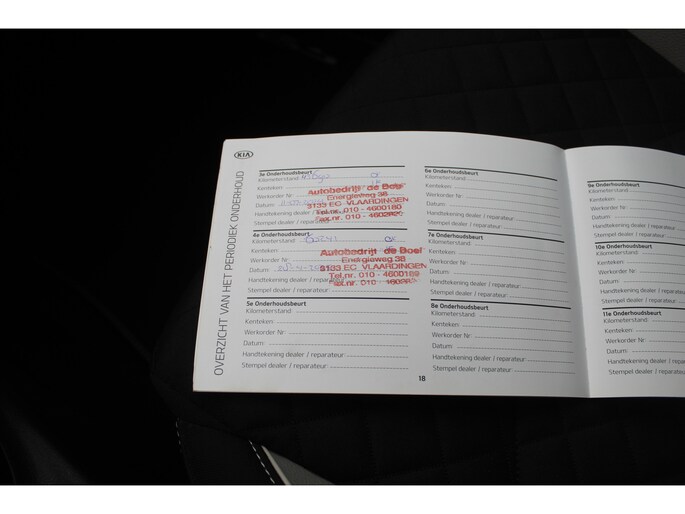 KIA
OVERZICHT VAN HET PERIODIEK ONDERHOUD
3e Onderhoudsbeurt
Kilometerstand:
Kenteken:
Werkorder Nr:
Datum:
Handtekening dealer / reparateur:
Stempel dealer / reparateur:
Autobedrijf de Boer
Energieweg 38
3133 EC VLAARDINGEN
Tel.nr. 010 - 4600180
4e Onderhoudsbeurt
Kilometerstand:
Kenteken:
Werkorder Nr:
Datum:
Handtekening dealer / reparateur:
Stempel dealer / reparateur:
Autobedrijf de Boer
Energieweg 38
3133 EC VLAARDINGEN
Tel.nr. 010 - 4600189
5e Onderhoudsbeurt
Kilometerstand:
Kenteken:
Werkorder Nr:
Datum:
Handtekening dealer / reparateur:
Stempel dealer / reparateur:
6e Onderhoudsbeurt
Kilometerstand:
Kenteken:
Werkorder Nr:
Datum:
Handtekening dealer / reparateur:
Stempel dealer / reparateur:
7e Onderhoudsbeurt
Kilometerstand:
Kenteken:
Werkorder Nr:
Datum:
Handtekening dealer / reparateur:
Stempel dealer / reparateur:
8e Onderhoudsbeurt
Kilometerstand:
Kenteken:
Werkorder Nr:
Datum:
Handtekening dealer / reparateur:
Stempel dealer / reparateur:
18
9e Onderhoudsbeurt
Kilometerstand:
Kenteken:
Werkorder Nr:
Datum:
Handtekening dealer
Stempel dealer / rep
10e Onderhoudsbeurt
Kilometerstand:
Kenteken:
Werkorder Nr:
Datum:
Handtekening dealer /
Stempel dealer / repar
11e Onderhoudsbeurt
Kilometerstand:
Kenteken:
Werkorder Nr:
Datum:
Handtekening dealer / r
Stempel dealer / reparat